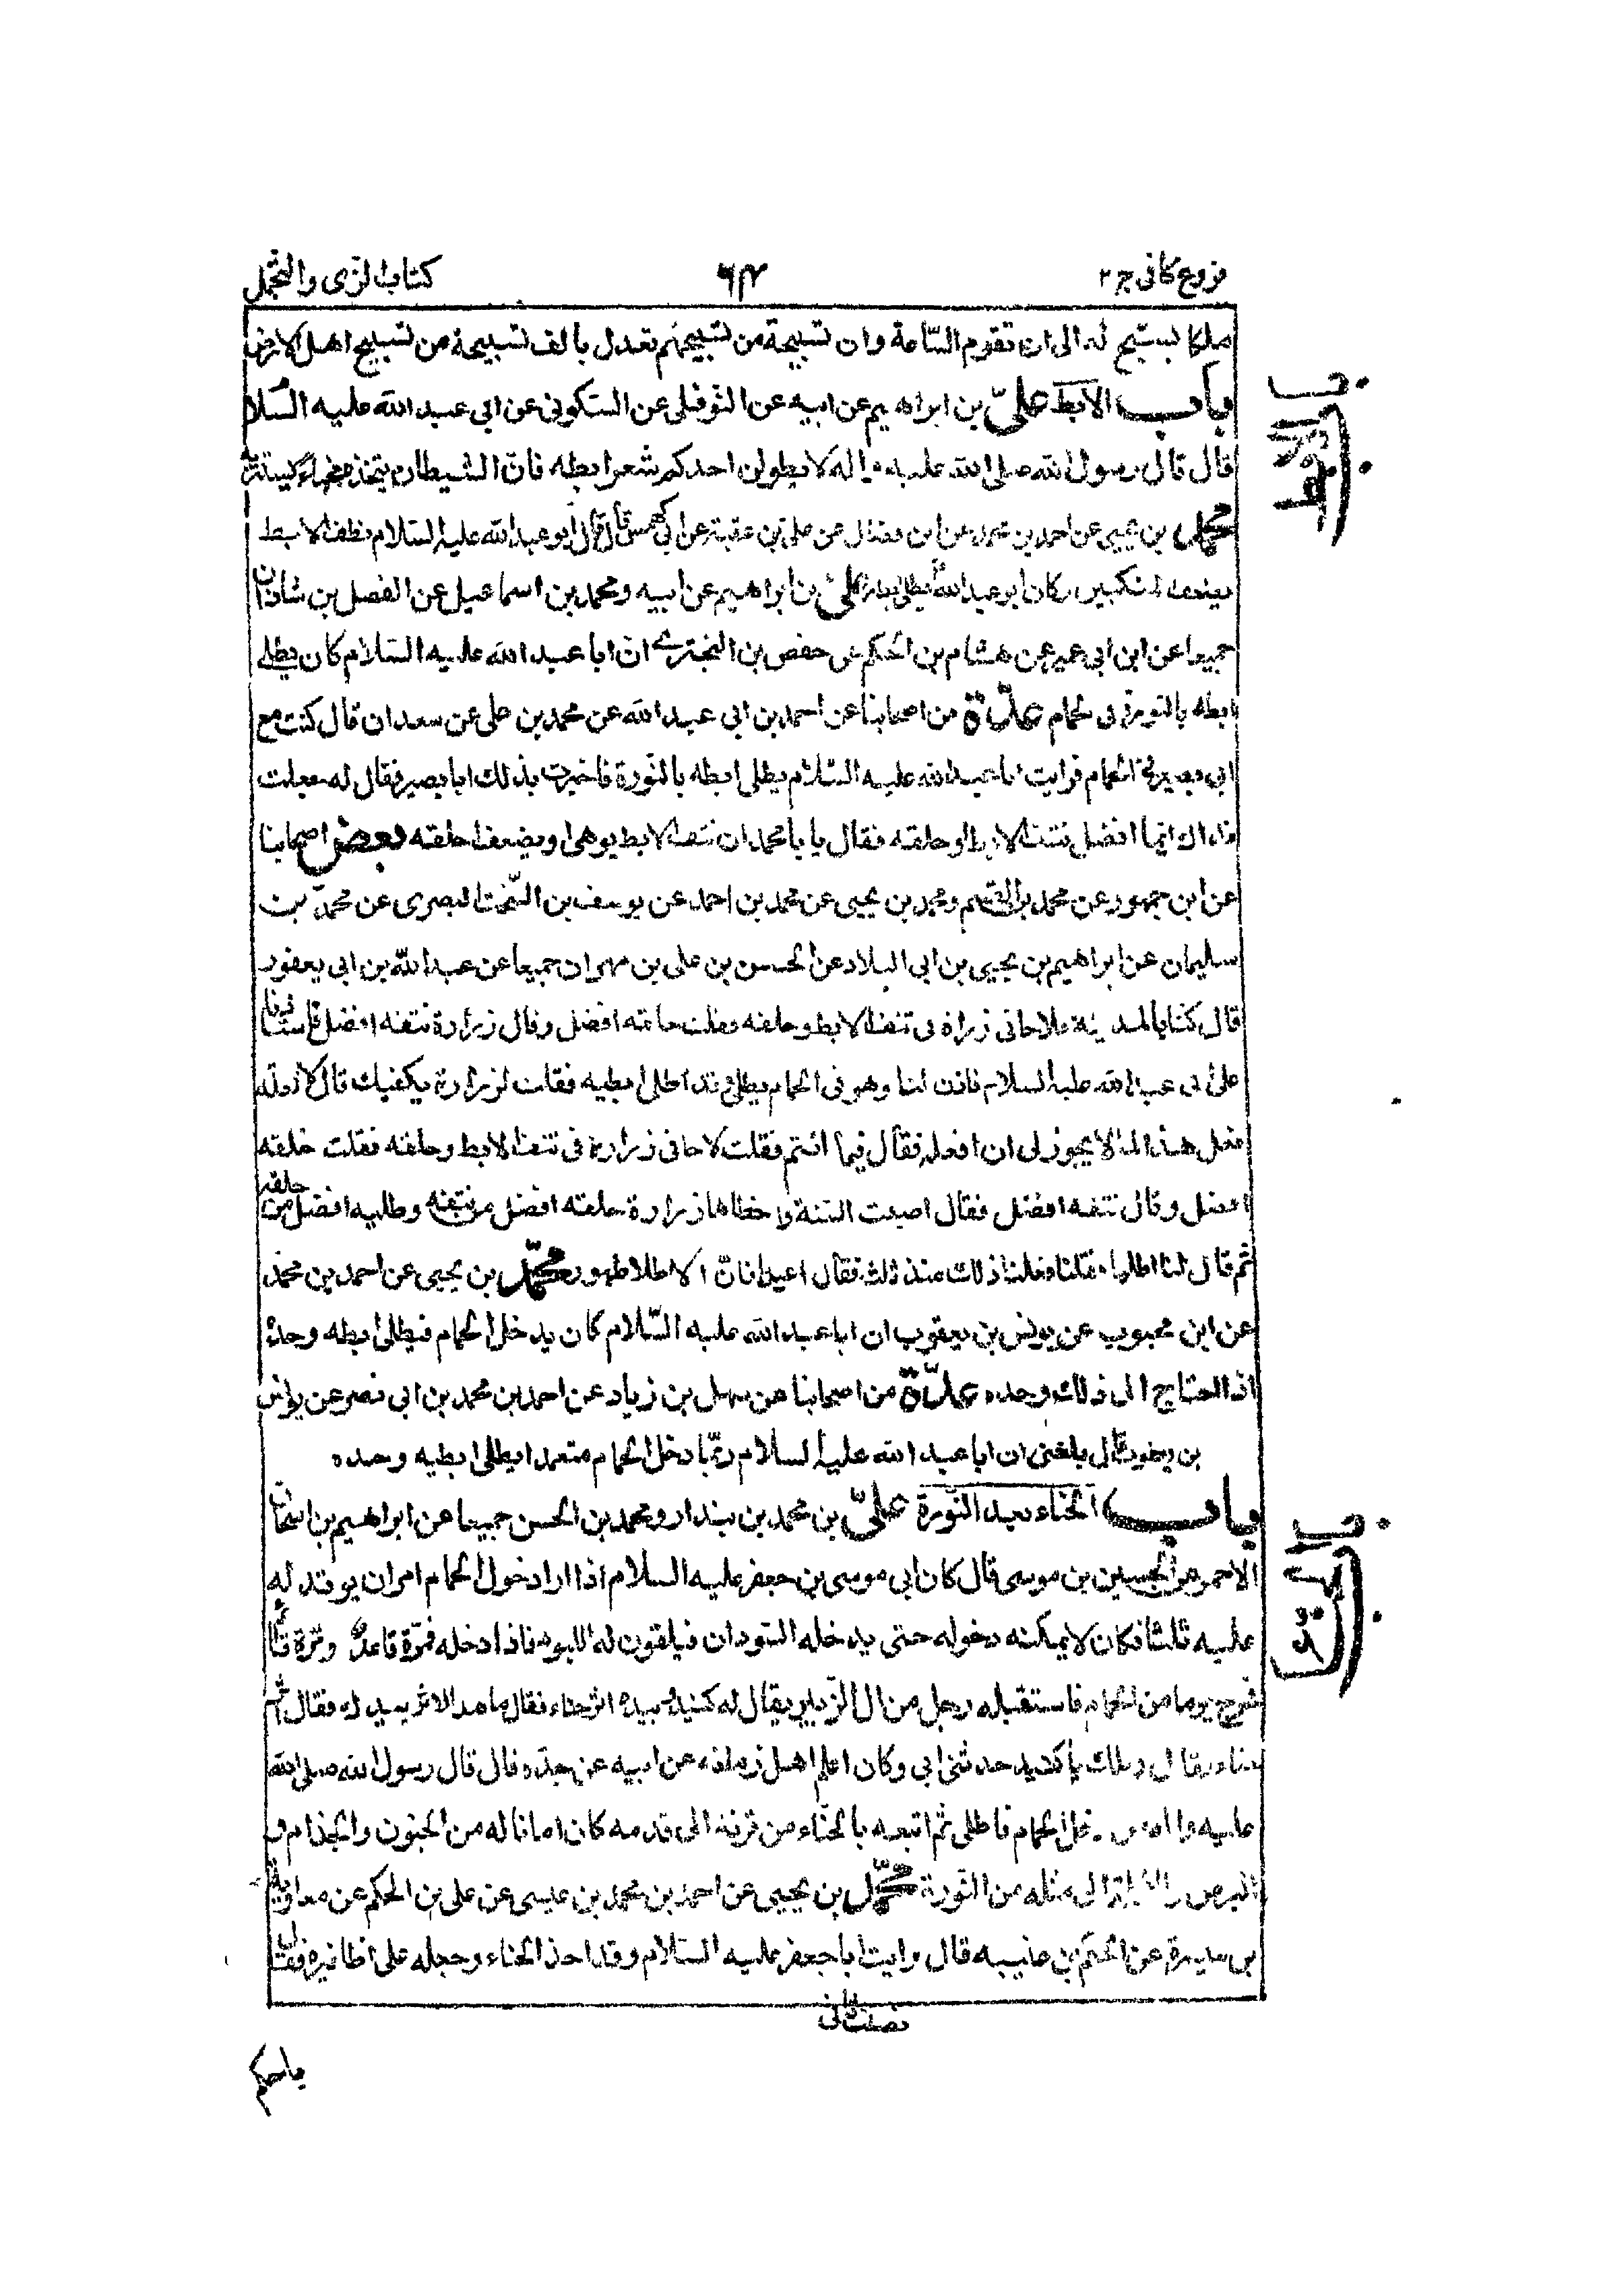 فروع كافى ج ٢
٦٤
كتاب الزى والتجمل
ملكا يسبّح له الى ان تقوم السّاعة وان تسبيحة من تسبيحهم تعدل بالف تسبيحة من تسبيح اهل الارض
باب الابط علىّ بن ابراهيم عن ابيه عن النوفلى عن السكونى عن ابى عبد الله عليه السّلا
قال قال رسول الله صلى الله عليه واله لا يطولن احدكم شعر ابطه فان الشيطان يتخذه مخباء يستتر به
محمّد بن يحيى عن احمد بن محمد عن ابن فضال عن على بن عقبة عن ابى كهمس قال قال ابو عبد الله عليه السّلام نتف الابط
يضعف المنكبين وكان ابو عبد الله يطلى ابطه علىّ بن ابراهيم عن ابيه ومحمد بن اسماعيل عن الفضل بن شاذان
جميعا عن ابن ابى عمير عن هشام بن الحكم عن حفص بن البخترى انّ ابا عبد الله عليه السّلام كان يطلى
ابطه بالنورة فى الحمام عدّة من اصحابنا عن احمد بن ابى عبد الله عن محمد بن على عن سعدان قال كنت مع
ابى بصير فى الحمام فرايت ابا عبد الله عليه السّلام يطلى ابطه بالنّورة فاخبرت بذلك ابا بصير فقال له جعلت
فداك ايّما افضل نتف الابط او حلقه فقال يا با محمد ان نتف الابط يوهى او يضعف احلقه بعض اصحابنا
عن ابن جمهور عن محمد بن القسم ومحمد بن يحيى عن محمد بن احمد عن يوسف بن السّخت البصرى عن محمّد بن
سليمان عن ابراهيم بن يحيى بن ابى البلاد عن الحسن بن على بن مهران جميعا عن عبد الله بن ابى يعفور
قال كنا بالمدينة فلاحانى زرارة فى نتف الابط وحلقه فقلت حلقه افضل وقال زرارة نتفه افضل فاستاذنا
على ابى عبد الله عليه السلام فاذن لنا وهو فى الحمام يطلى وقد اطلى ابطيه فقلت لزرارة يكفيك قال لا لعلّه
فعل هذا لما لا يجوز لى ان افعله فقال فيما انتم فقلت لاحانى زرارة فى نتف الابط وحلقه فقلت حلقه
افضل وقال نتفه افضل فقال اصبت السّنة واخطاها زرارة حلقه افضل من نتفه وطليه افضل من حلقه
ثم قال لنا اطليا فقلنا فعلنا ذلك منذ ثلث فقال اعيدا فانّ الاطلا طهور محمّد بن يحيى عن احمد بن محمد
عن ابن محبوب عن يونس بن يعقوب ان ابا عبد الله عليه السّلام كان يدخل الحمام فيطلى ابطه وحده
اذا احتاج الى ذلك وحده عدّة من اصحابنا عن سهل بن زياد عن احمد بن محمد بن ابى نصر عن يونس
بن يعقوب قال بلغنى ان ابا عبد الله عليه السلام ربّما دخل الحمام متعمدا يطلى ابطيه وحده
باب الحناء بعد النّورة علىّ بن محمد بن بندار ومحمد بن الحسن جميعا عن ابراهيم بن اسحاق
الاحمر عن الحسين بن موسى قال كان ابى موسى بن جعفر عليه السلام اذا اراد دخول الحمام امر ان يوقد له
عليه ثلثا فكان لا يمكنه دخوله حتى يدخله السّودان فيلقون له اللبود فاذا دخله فمرّة قاعد ومرّة قائم
فخرج يوما من الحمام فاستقبله رجل من ال الزّبير يقال له كنيد وبيده اثر حناء فقال ما هذا الاثر بيدك فقال اثر
حناء فقال ويلك يا كنيد حدثنى ابى وكان اعلم اهل زمانه عن ابيه عن جدّه قال قال رسول الله صلى الله
عليه واله من دخل الحمام فاطلى ثم اتبعه بالحنّاء من قرنه الى قدمه كان امانا له من الجنون والجذام و
البرص والاكلة الى مثله من النّورة محمّد بن يحيى عن احمد بن محمد بن عيسى عن على بن الحكم عن معاوية
بن ميسرة عن الحكم بن عتيبه قال رايت ابا جعفر عليه السّلام وقد اخذ الحناء وجعله على اظافيره فقال
نصف ثانى
يا حكم